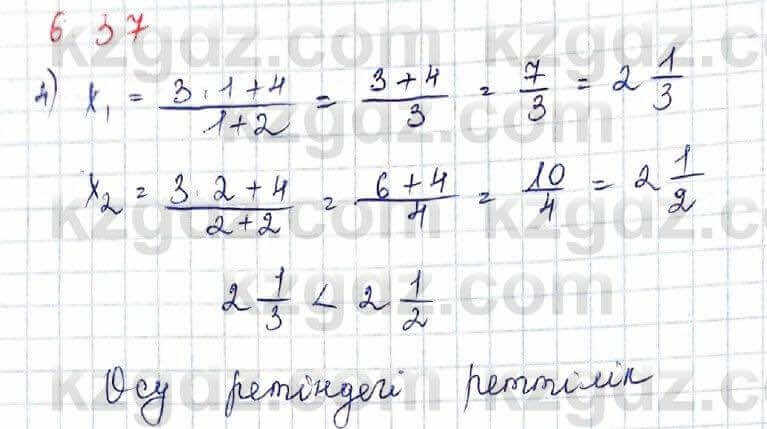 6 37
4) x₁ = (3·1+4)/(1+2) = (3+4)/3 = 7/3 = 2 1/3
x₂ = (3·2+4)/(2+2) = (6+4)/4 = 10/4 = 2 1/2
2 1/3 < 2 1/2
Өсу ретіндегі реттілік
kzgdz.com